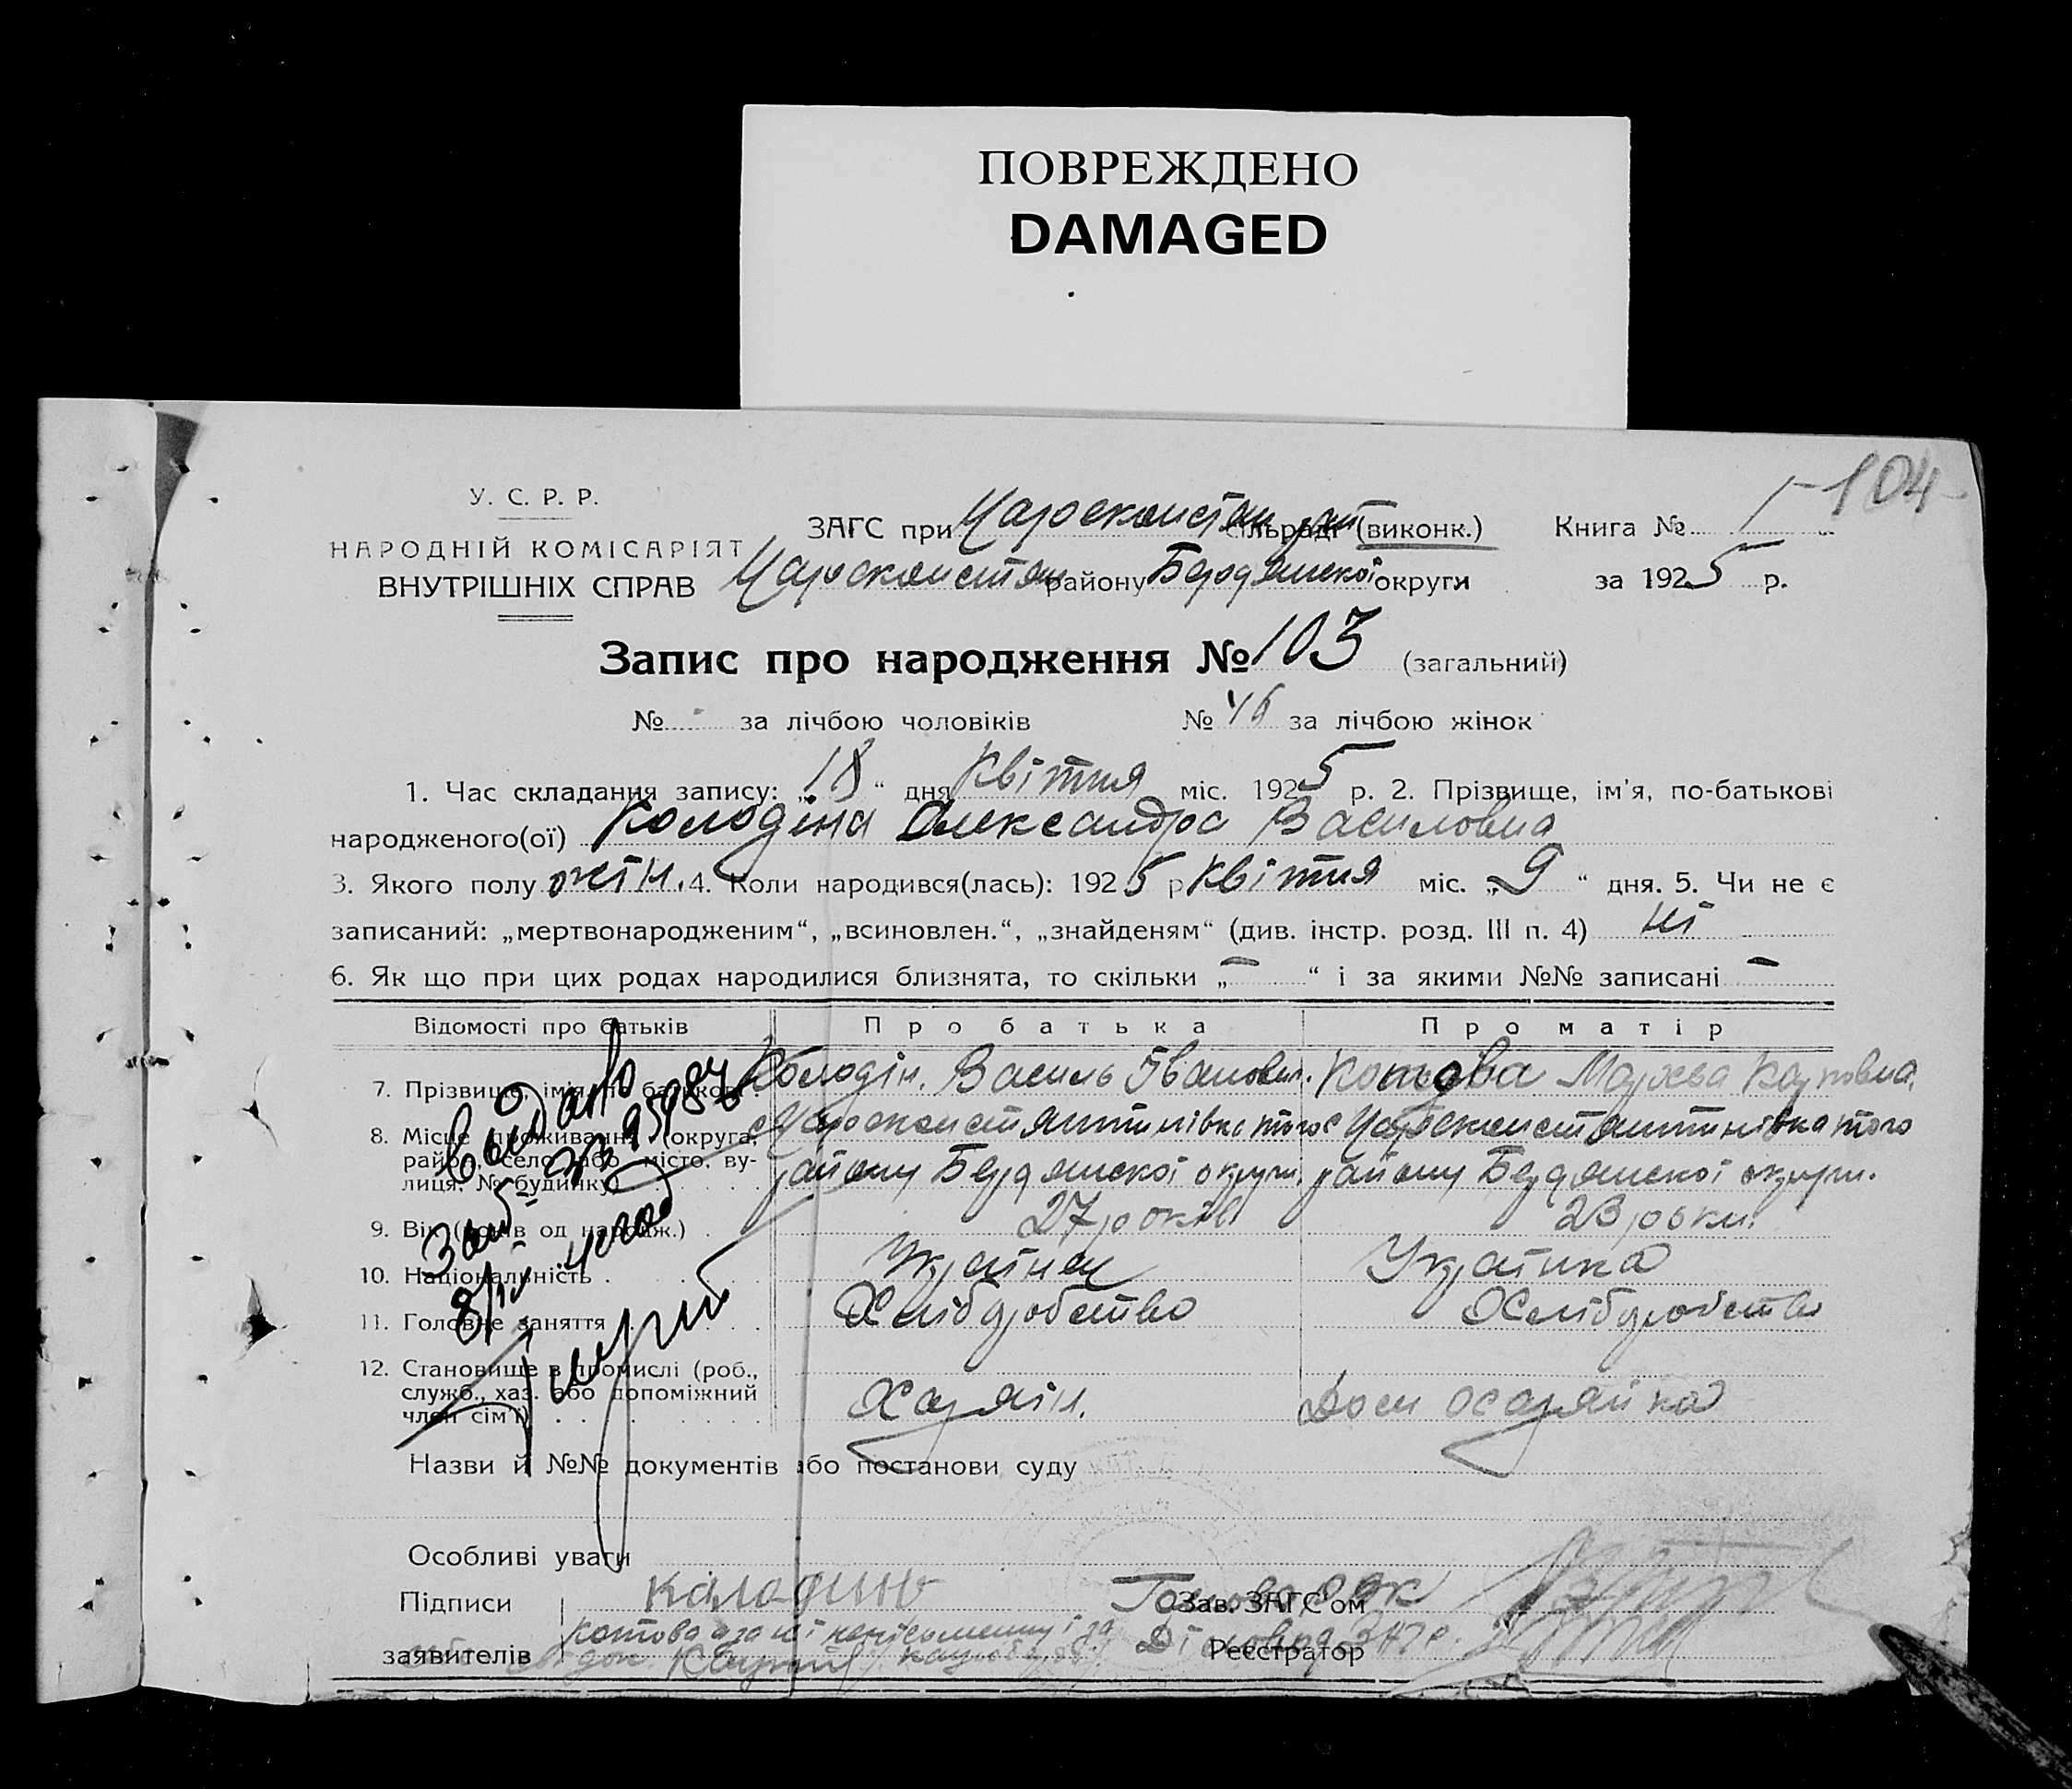 ПОВРЕЖДЕНО
DAMAGED
104
У. С. Р. Р.
НАРОДНІЙ КОМІСАРІЯТ
ВНУТРІШНІХ СПРАВ
ЗАГС при Цароконстан сільраді (виконк.) Книга № 1
Цароконстан району Бердянської округи за 1925 р.
Запис про народження № 103 (загальний)
№ - за лічбою чоловіків № 46 за лічбою жінок
1. Час складання запису: „18“ дня Квітня міс. 1925 р. 2. Прізвище, ім’я, по-батькові
народженого(ої) Колодіна Олександра Василовна
3. Якого полу жін. 4. Коли народився(лась): 1925 р Квітня міс. „9“ дня. 5. Чи не є
записаний: „мертвонародженим“, „всиновлен.“, „знайденям“ (див. інстр. розд. III п. 4) ні
6. Як що при цих родах народилися близнята, то скільки „—“ і за якими №№ записані —
Відомості про батьків Про батька Про матір
7. Прізвище, імія, по батькові. Колодін. Василь Іванович. Котова Мархва Карповна.
8. Місце проживання (округа, район, село або місто, вулиця, № будинку) с Цароконстянтинівка того району Бердянської округи. с Цароконстянтинівка того району Бердянської округи.
9. Вік (років од народж.) 27 років 23 роки.
10. Національність Українец Українка
11. Головне заняття Хлібдробство Хлібдробство
12. Становище в промислі (роб., служб., хаз. або допоміжний член сім’ї) Хазяїн. Дом хазяйка
Видано
Назви й №№ документів або постанови суду
Особливі уваги
Підписи Калодинь Зав. ЗАГС’ом
заявителів Котова а за неї неписьменну і за Реєстратор